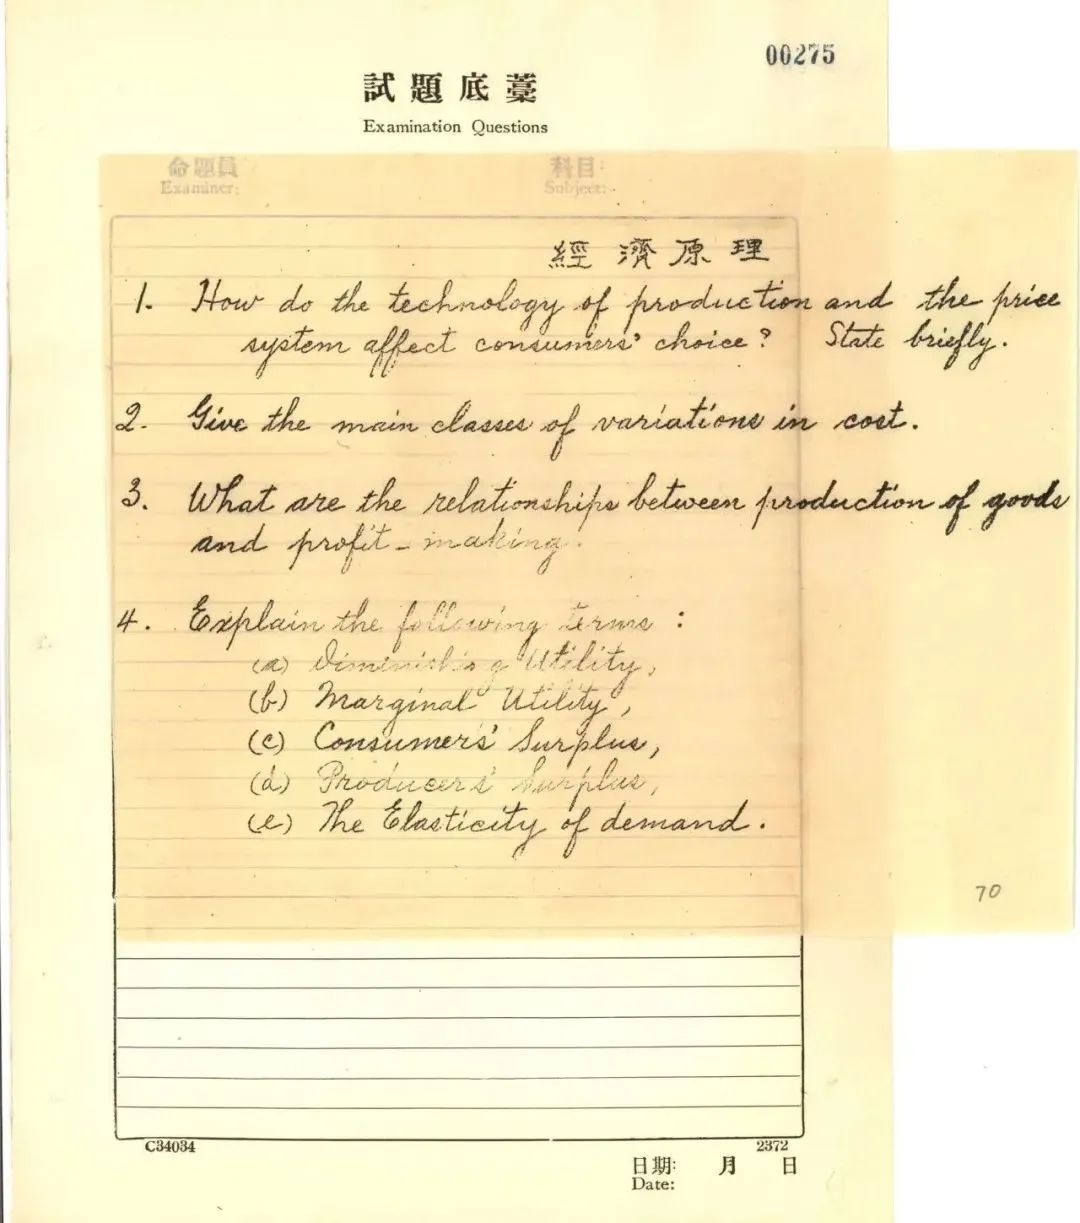 00275
試題底藁
Examination Questions
命題員 科目:
Examiner: Subject:
經濟原理
1. How do the technology of production and the price
system affect consumers' choice? State briefly.
2. Give the main classes of variations in cost.
3. What are the relationships between production of goods
and profit-making.
4. Explain the following terms:
(a) Diminishing Utility,
(b) Marginal Utility,
(c) Consumers' Surplus,
(d) Producers' Surplus,
(e) The Elasticity of demand.
70
C34034 2372
日期: 月 日
Date: